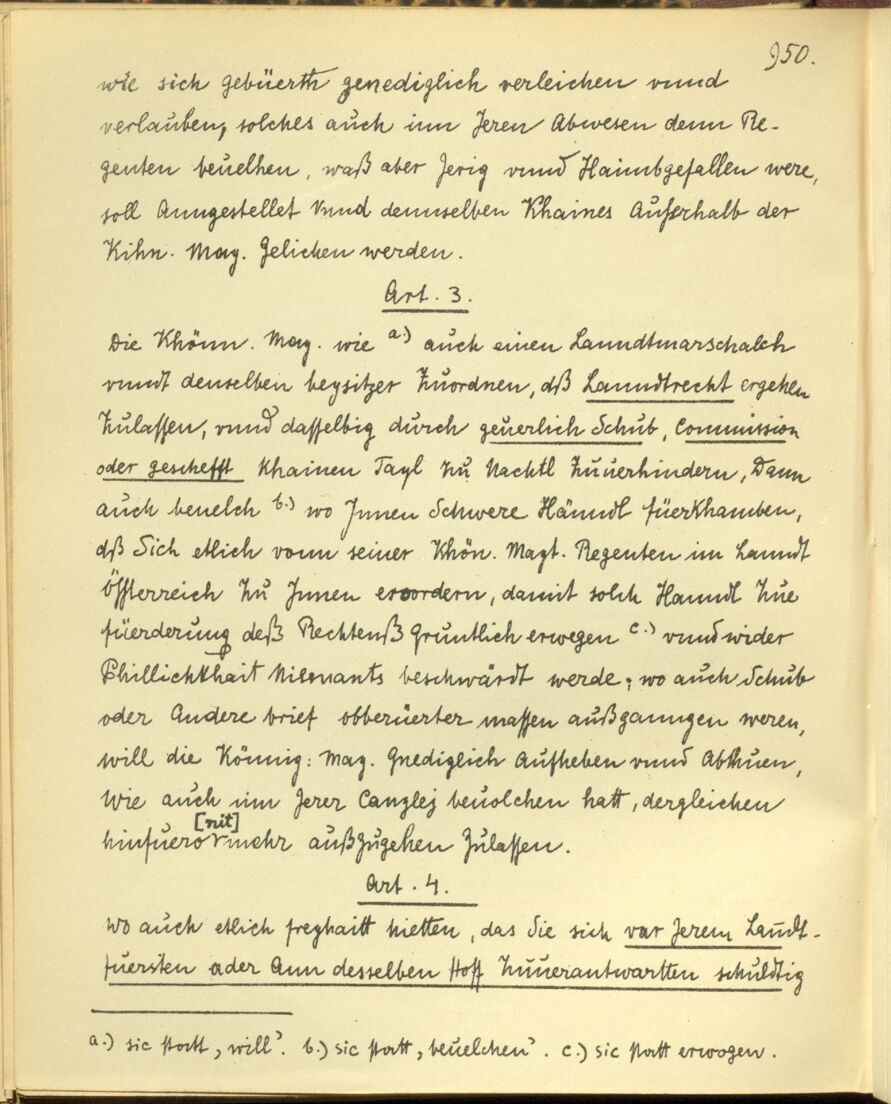 950.
wie sich gebüerth genediglich verleichen vnnd
verlauben, solches auch inn Jeren Abwesen denn Re-
genten beuelhen, waß aber Jerig vnnd Haimbgefallen were,
soll Anngestellet vnnd dennselben Khaines Ausserhalb der
Kihn. May. Gelichen werden.
Art. 3.
Die Khönn. May. wie a.) auch einen Lanndtmarschalch
vnndt denselben beysitzer Zuordnen, dß Lanndtrecht ergehen
Zulassen, vnnd dasselbig durch geuerlich Schub, Commission
oder geschefft Khainen Tayl Zu Nachtl Zuuerhindern, Dann
auch beuelch b.) wo Jnnen Schwere Hänndl füerkhamben,
dß Sich etlich vonn seiner Khön. Mayt. Regenten im Lanndt
Össterreich Zu Jnnen eruordern, damit solch Hanndl Zue
füerderung deß Rechtenß Gruntlich erwegen c.) vnnd wider
Phillichkhait Niemants beschwärdt werde; wo auch Schub
oder Andere brief obberüerter massen außganngen weren,
will die Königg: May. Gnediglich Aufheben vnnd Abthuen,
Wie auch inn Jerer Canzlej beuolchen hatt, dergleichen
[nit]
hinfuero mehr außzugehen Zulassen.
Art. 4.
Wo auch etlich freyhaitt hietten, das Sie sich var Jerem Landt-
fuersten ader Ann desselben Hoff Zuuerantwartten schuldtig
a.) sic statt „will“. b.) sic statt „beuelchen“. c.) sic statt erwogen.